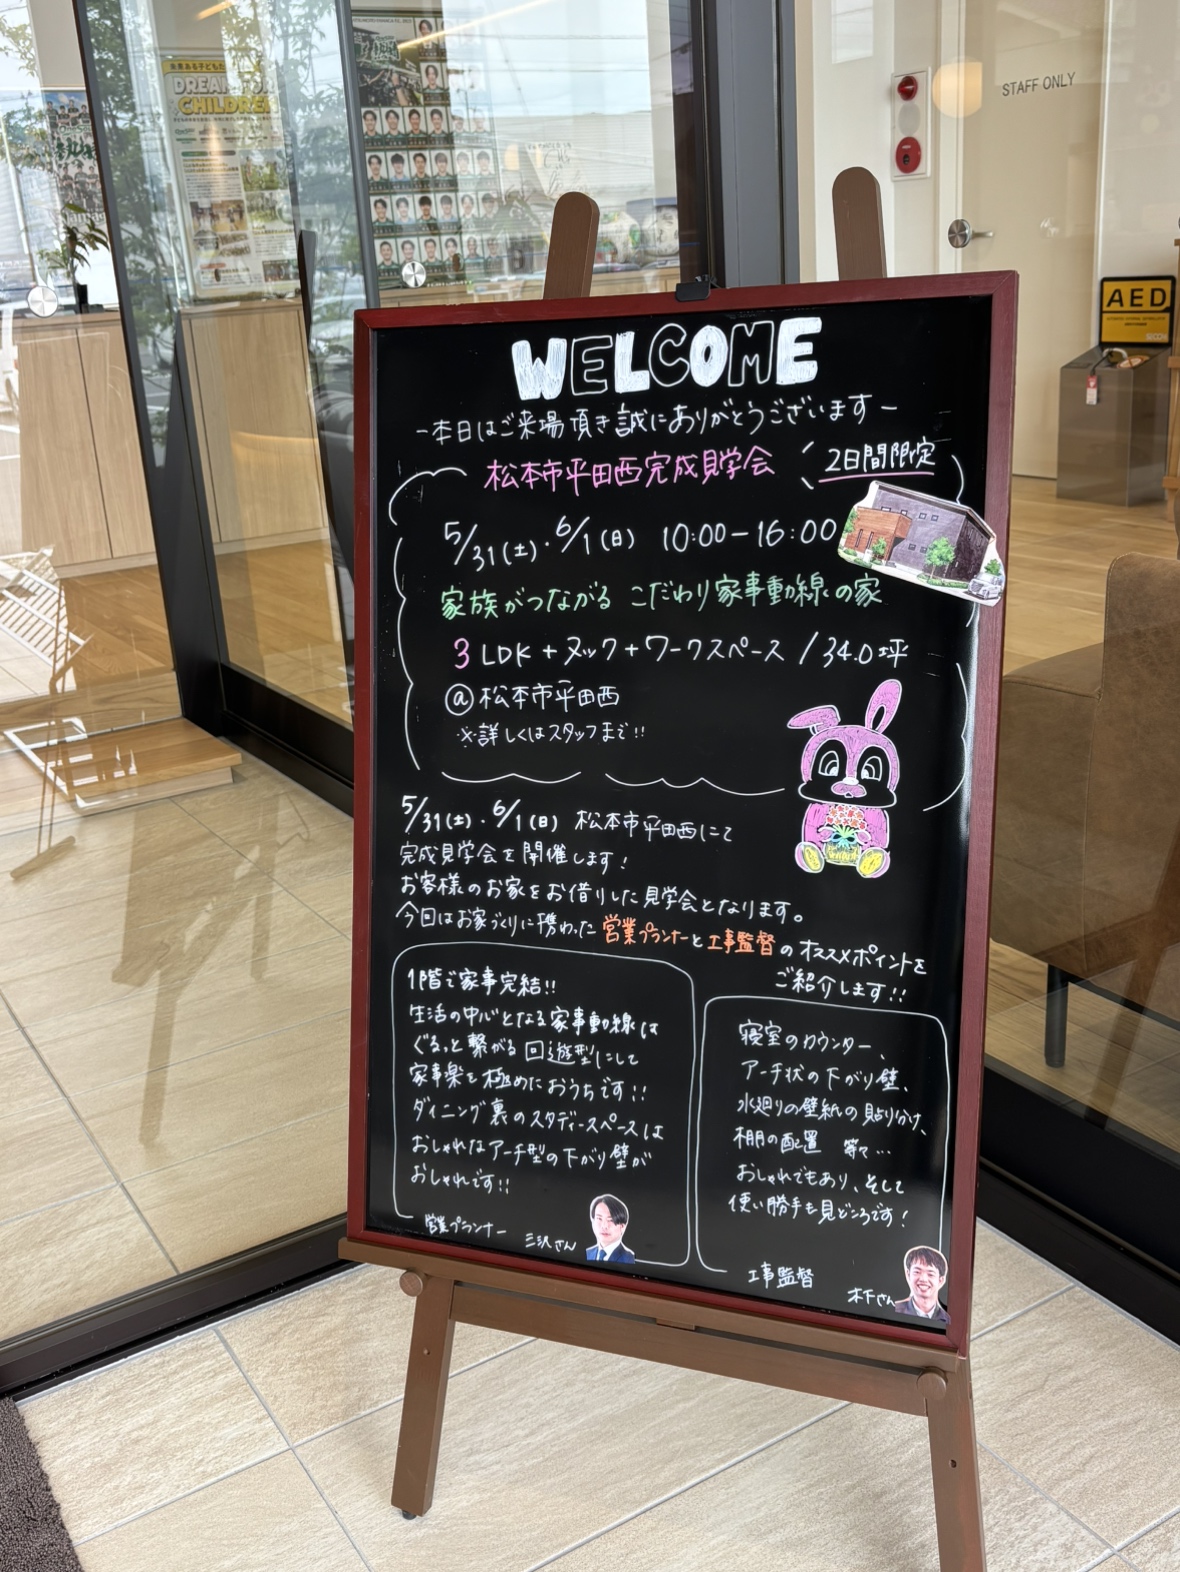 未来ある子どもた
DREAM FOR
CHILDREN
STAFF ONLY
AED
WELCOME
-本日はご来場頂き誠にありがとうございます-
松本市平田西完成見学会
2日間限定
5/31(土)・6/1(日) 10:00-16:00
家族がつながる こだわり家事動線の家
3LDK+ヌック+ワークスペース/34.0坪
@松本市平田西
※詳しくはスタッフまで!!
5/31(土)・6/1(日) 松本市平田西にて
完成見学会を開催します!
お客様のお家をお借りした見学会となります。
今回はお家づくりに携わった営業プランナーと工事監督のオススメポイントを
ご紹介します!!
1階で家事完結!!
生活の中心となる家事動線は
ぐるっと繋がる回遊型にして
家事楽を極めたおうちです!!
ダイニング裏のスタディースペースは
おしゃれなアーチ型の下がり壁が
おしゃれです!!
営業プランナー 三沢さん
寝室のカウンター、
アーチ状の下がり壁、
水廻りの壁紙の貼り分け、
棚の配置 等々…
おしゃれでもあり、そして
使い勝手も見どころです!
工事監督 木下さん